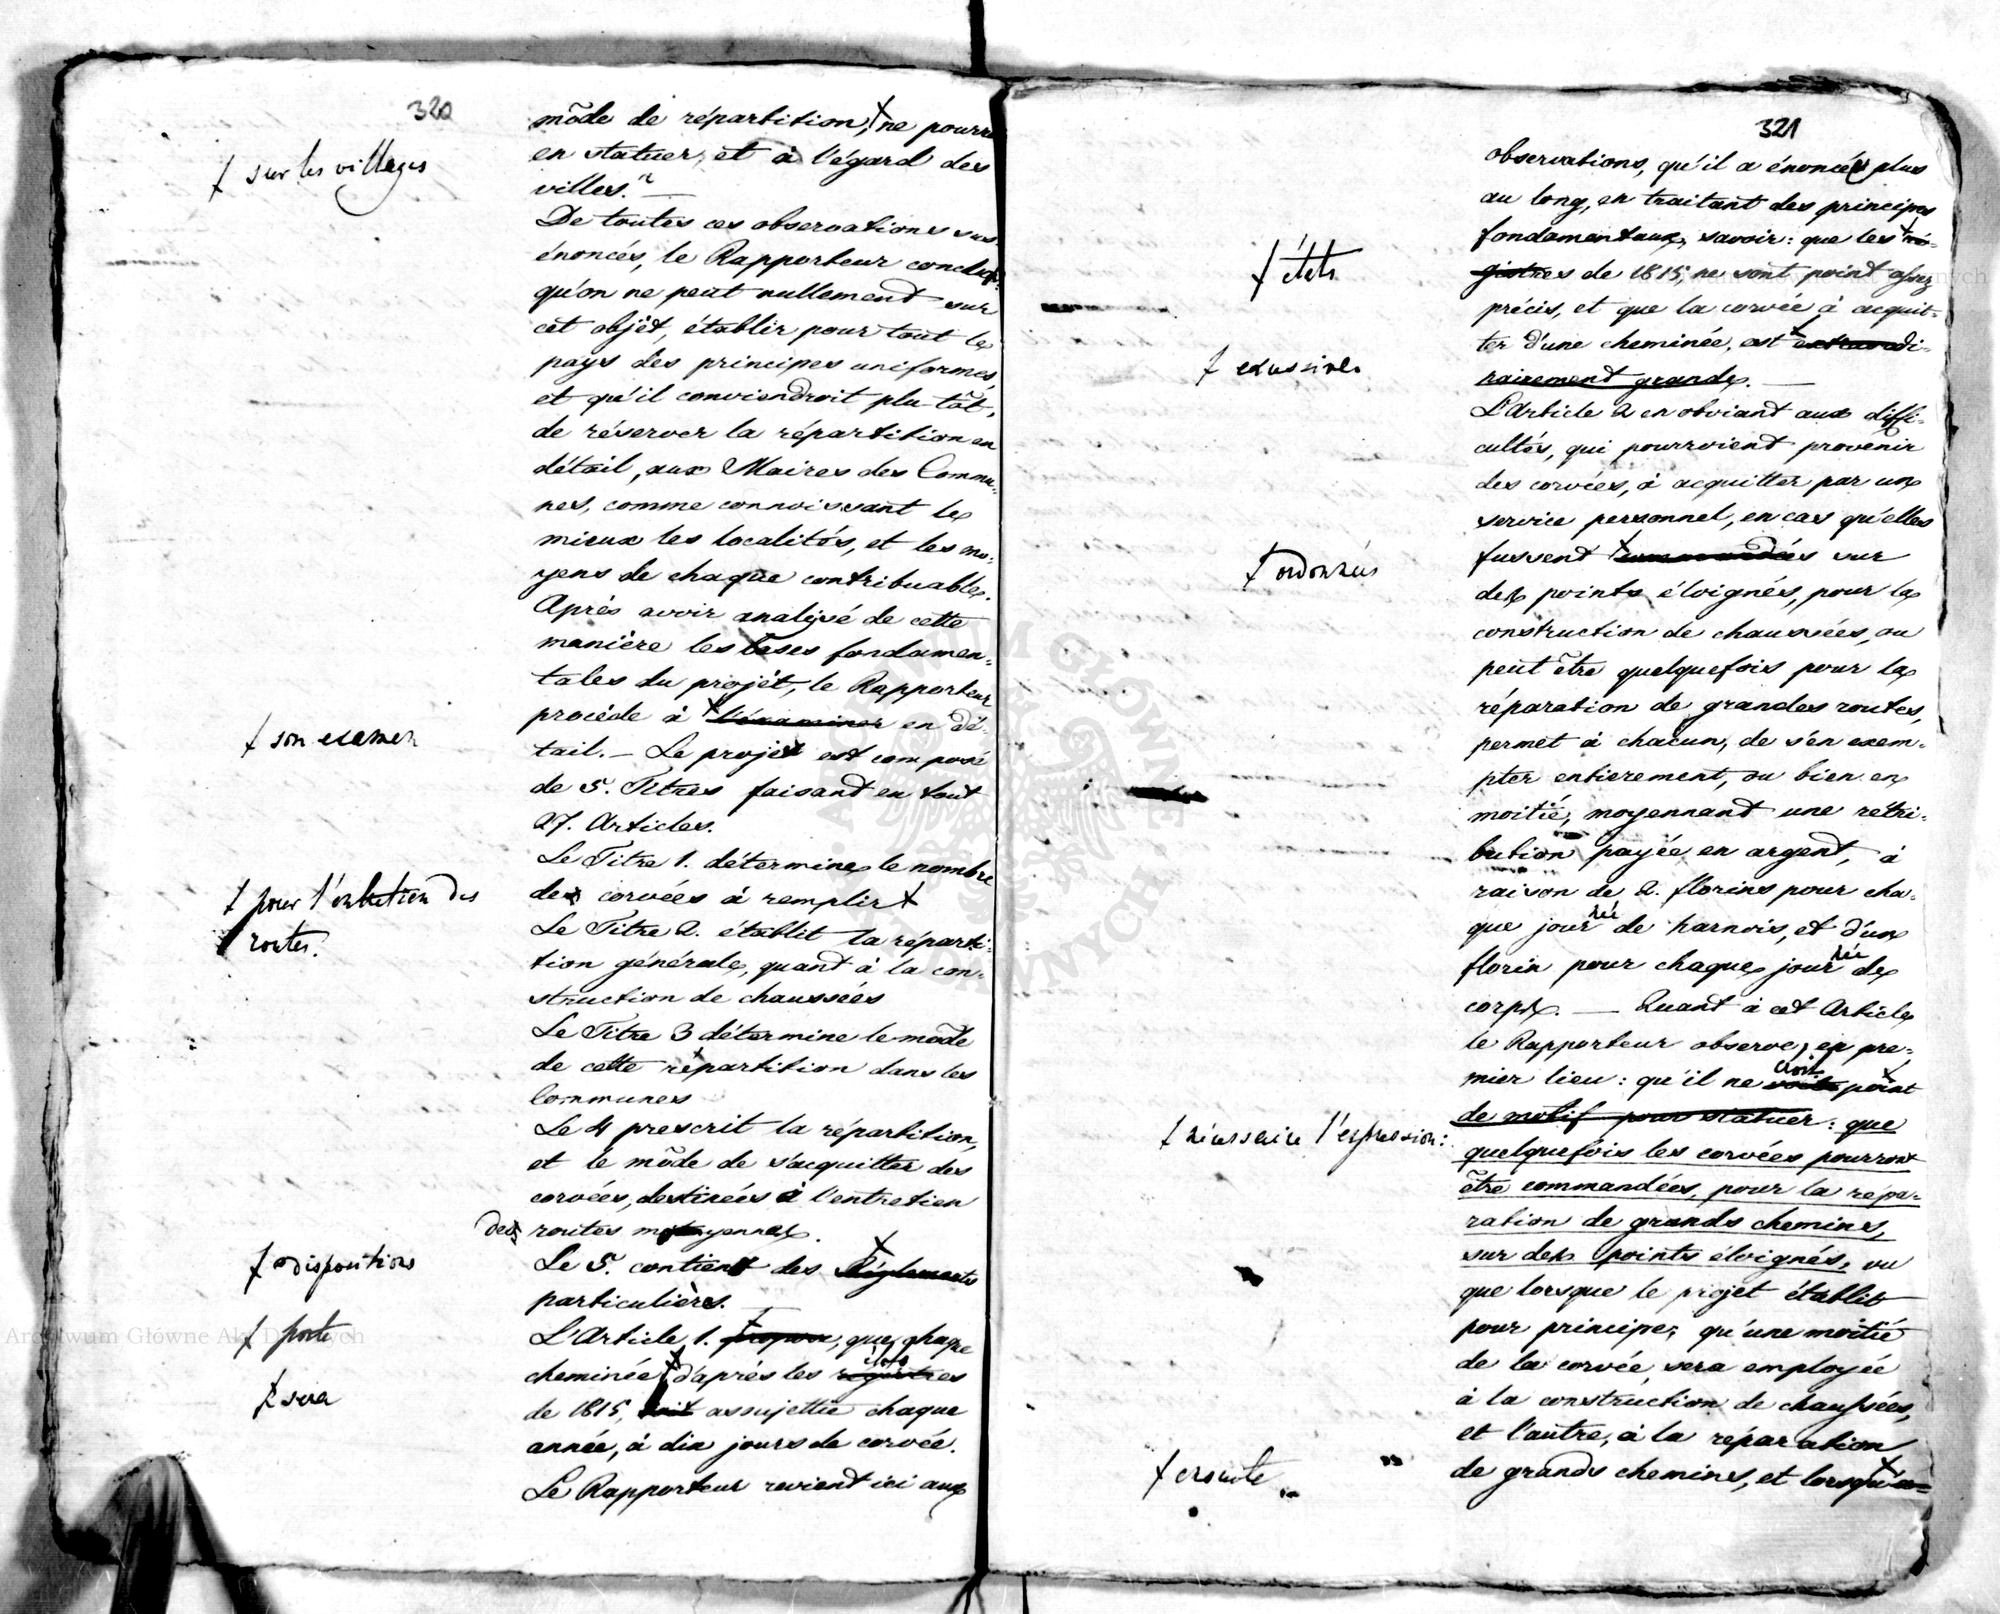 320
mode de répartition, ne pourra
en statuer, et à l'égard des
villes." —
De toutes ces observations sus-
énoncés, le Rapporteur conclud,
qu'on ne peut nullement sur
cet objèt, établir pour tout le
pays des principes uniformes,
et qu'il conviendroit plu-tôt,
de réserver la répartition en
détail, aux Maires des Commu-
nes, comme connoissant le
mieux les localités, et les mo-
yens de chaque contribuable.
Après avoir analysé de cette
manière les bases fondamen-
tales du projèt, le Rapporteur
procède à l'éxaminer en dé-
tail. — Le projet est composé
de 5. Titres faisant en tout
27. Articles.
Le Titre 1. détermine le nombre
de corvées à remplir
Le Titre 2. établit la réparti-
tion générale, quant à la con-
struction de chaussées
Le Titre 3 détermine le mode
de cette répartition dans les
Communes
Le 4 prescrit la répartition,
et le mode de s'acquitter des
corvées, destinées à l'entretien
des routes moyennes.
Le 5. contient des Réglements
particulières. —
L'Article 1. propose, que chaque
cheminée d'après les régistres états
de 1815, soit assujettie chaque
année, à dix jours de corvée.
Le Rapporteur revient ici aux
+ sur les villages
+ son examen
+ pour l'entretien des
routes.
+ dispositions
+ porte
+ sera
321
observations, qu'il a énoncé plus
au long, en traitant des principes
fondamentaux, savoir: que les ré-
gistres de 1815 ne sont point assez
précis, et que la corvée à acquit-
ter d'une cheminée, est extraordi-
nairement grande. —
L'Article 2 en obviant aux diffi-
cultés, qui pourroient provenir
des corvées, à acquitter par un
service personnel, en cas qu'elles
fussent commandées sur
des points éloignés, pour la
construction de chaussées, ou
peut être quelquefois pour la
réparation de grandes routes,
permet à chacun, de s'en exem-
pter entierement, ou bien en
moitié, moyennant une rétri-
bution payée en argent, à
raison de 2. florins pour cha-
que journée de harnois, et d'un
florin pour chaque journée de
corps. — Quant à cet Article
le Rapporteur observe, en pre-
mier lieu: qu'il ne croit point
de motif pour statuer: que
quelquefois les corvées pourront
être commandées, pour la répa-
ration de grands chemins,
sur des points éloignés, vu
que lorsque le projet établit
pour principe, qu'une moitié
de la corvée, sera employée
à la construction de chaussées,
et l'autre, à la réparation
de grands chemins, et lorsqu'
+ états
+ excessive
+ ordonnées
+ nécessaire l'expression:
+ ensuite
Archiwum Główne Akt Dawnych